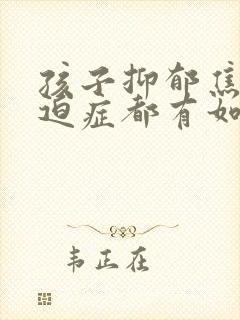 孩子抑郁焦
迫症都有如
韦正在